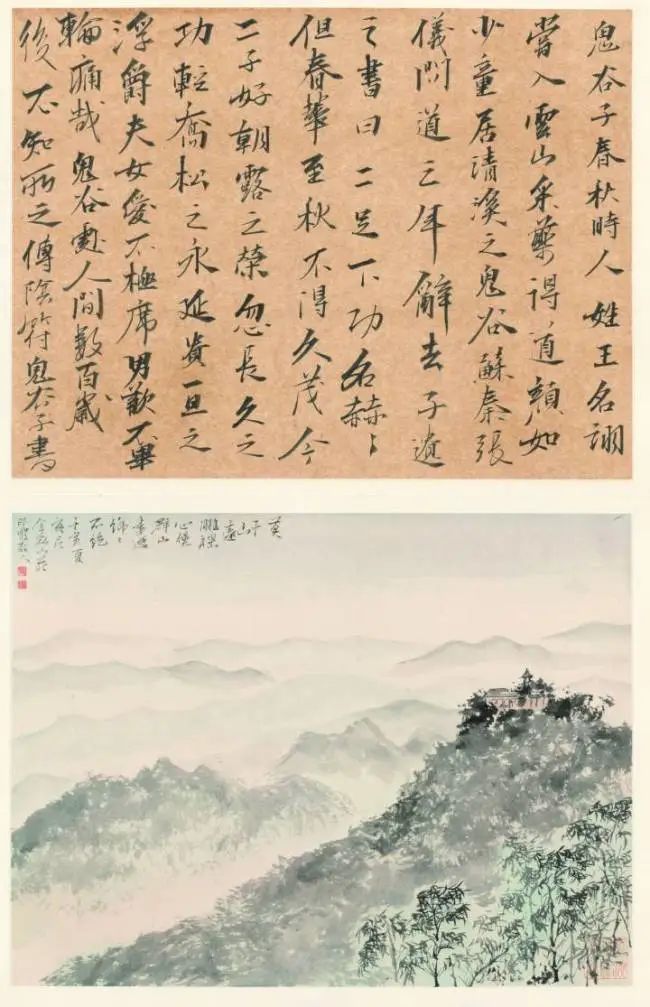 鬼谷子春秋時人姓王名詡
嘗入雲山采藥得道顏如
少童居清溪之鬼谷蘇秦張
儀問道三年辭去子遺
之書曰二足下功名赫〻
但春華至秋不得久茂今
二子好朝露之榮忽長久之
功輕喬松之永延貴一旦之
浮爵夫女愛不極席男歡不畢
輪痛哉鬼谷處人間數百歲
後不知所之傳陰符鬼谷子書
莫
干山
遠
群山
不絕
壬寅夏